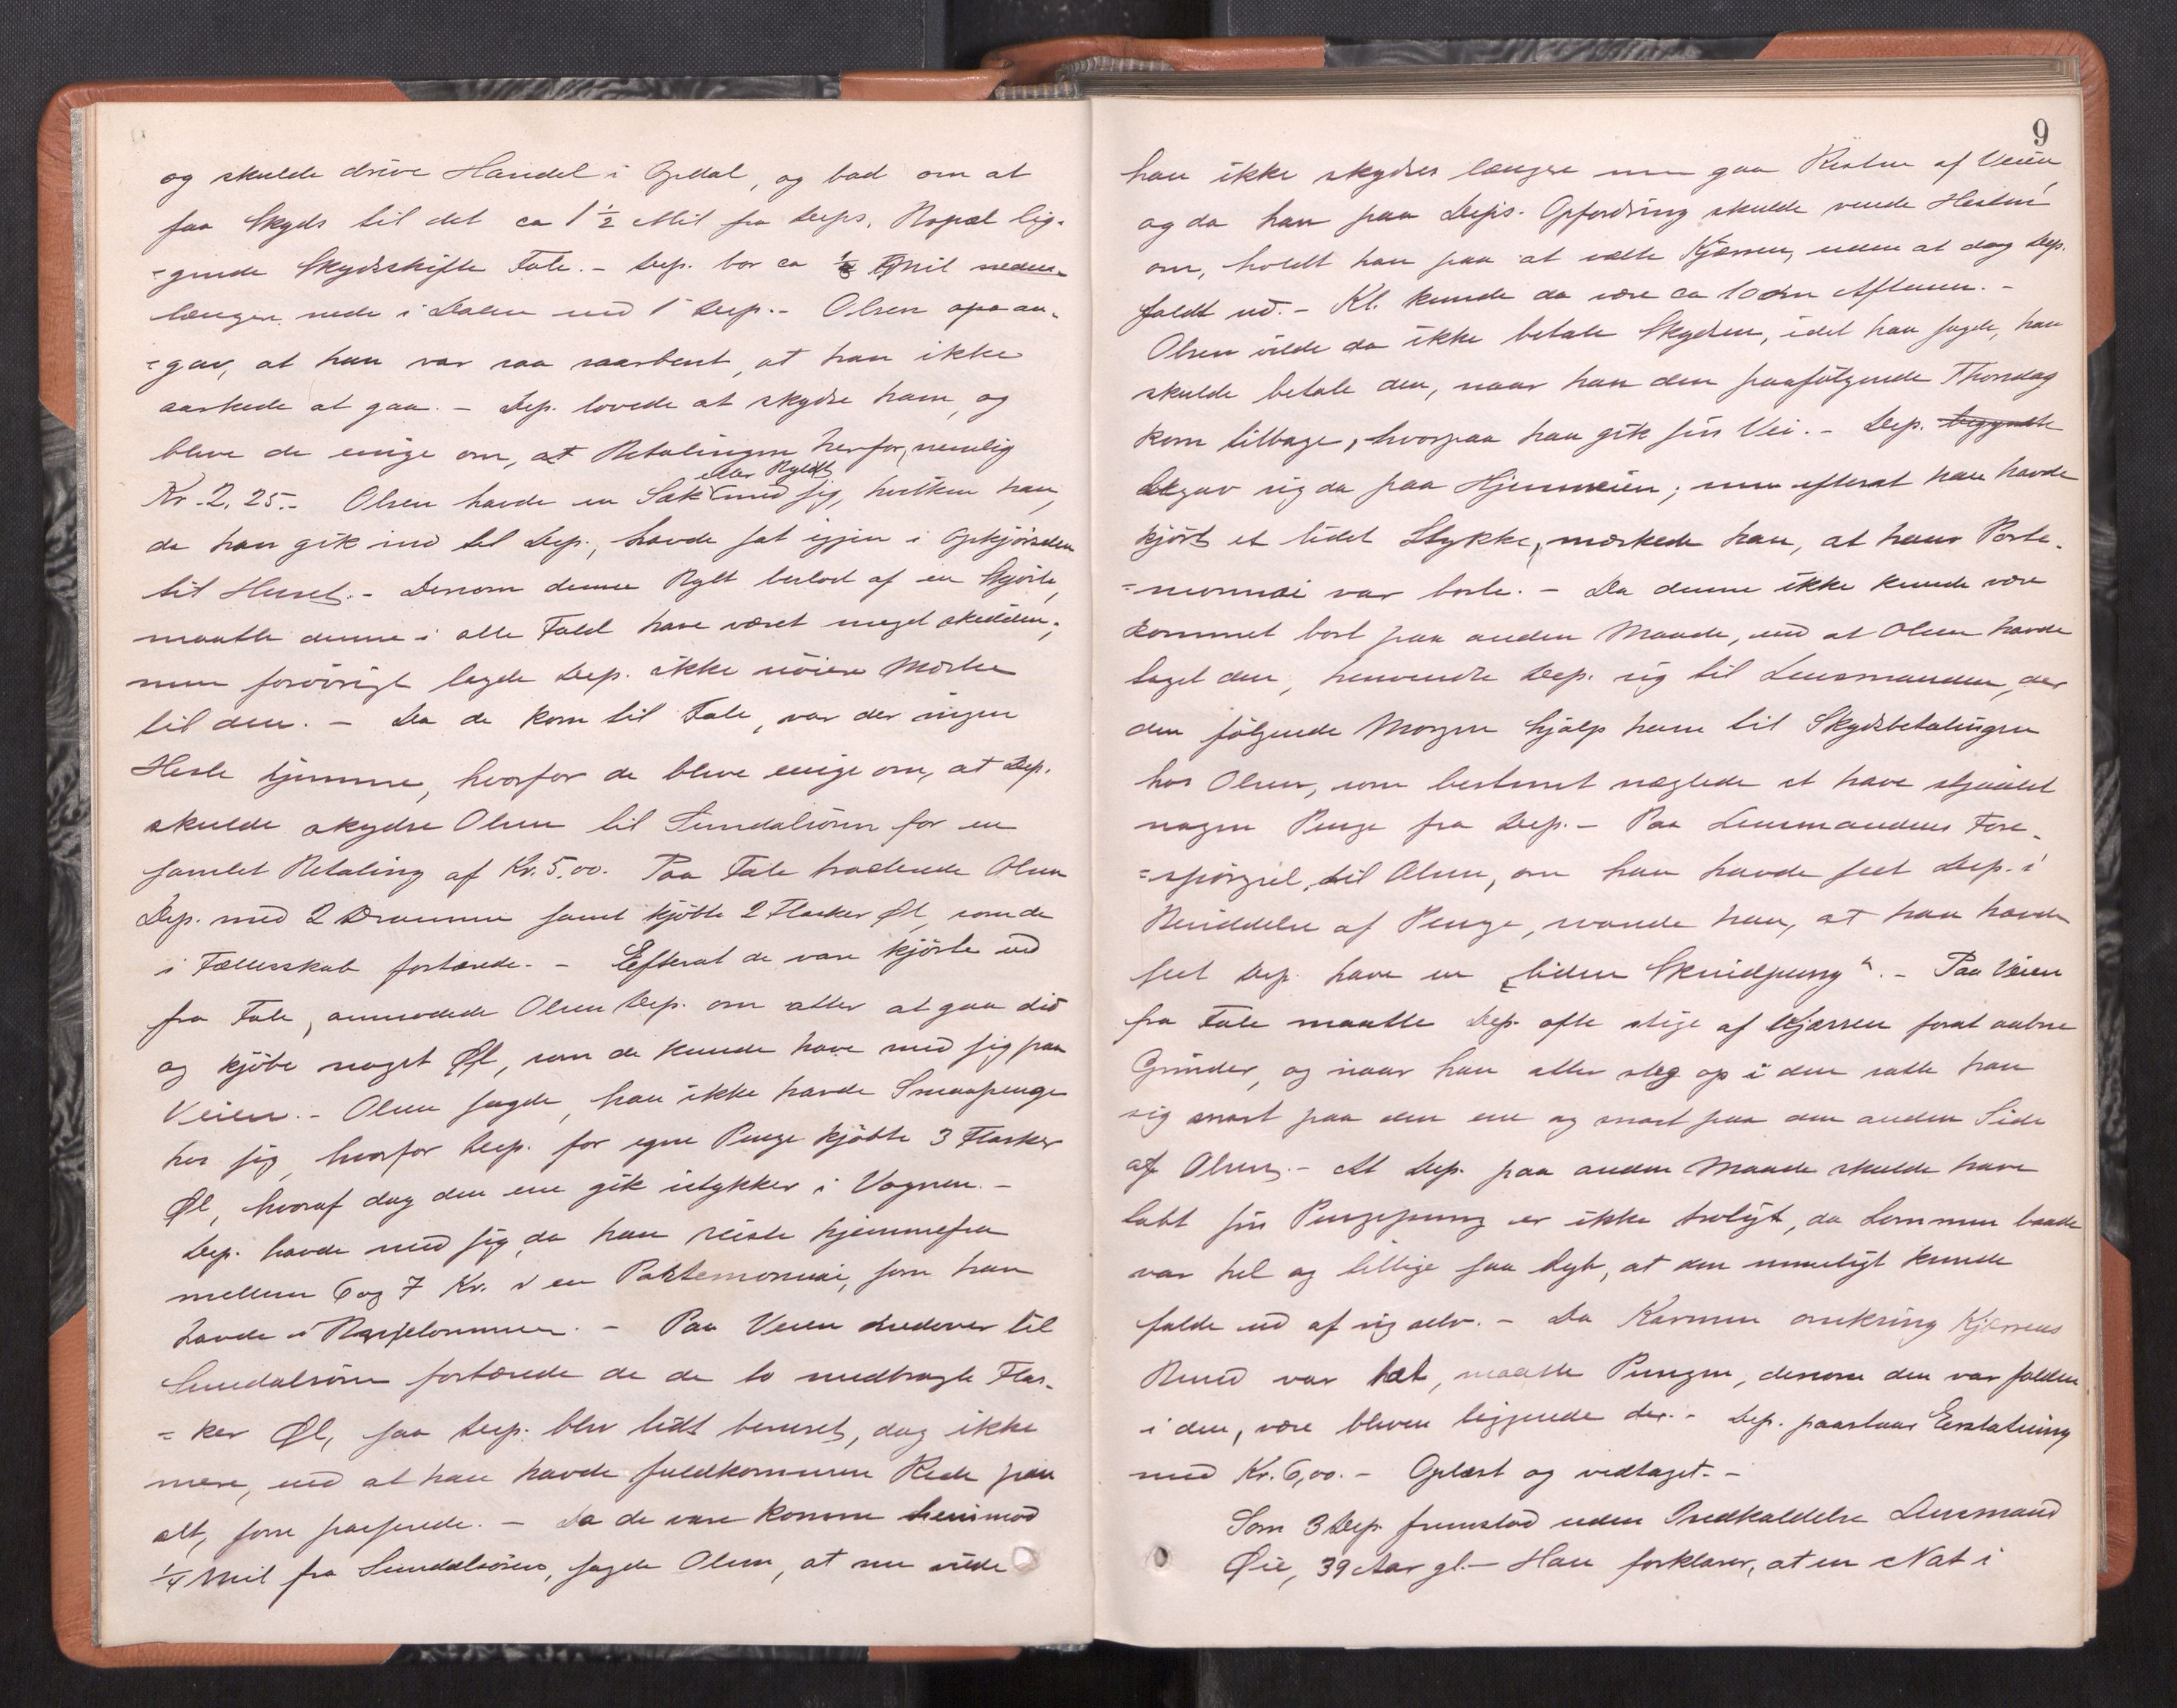 og skulde drive Handel i Opdal, og bad om at
faa Skyds til det ca 1½ Mil fra Deps. Bopæl lig-
=gende Skydsskifte Fale. - Dep. bor ca ½ Mil neden-
længere nede i Dalen end 1 Dep. - Olsen opa an-
=gav, at han var saa saarbent, at han ikke
aarkede at gaa. - Dep. lovede at skydse ham, og
bleve de enige om, at Betalingen herfor, nemlig
eller Byldt
Kr. 2,25. - Olsen havde en Sæk med sig, hvilken han,
da han gik ind til Dep., havde sat igjen i Opkjørselen
til Huset. - Dersom denne Bylt bestod af en Skjorte,
maatte denne i alle Fald have været meget skidden;
men forøvrigt lagde Dep. ikke nøiere Mærke
til den. - Da de kom til Fale, var der ingen
Heste hjemme, hvorfor de bleve enige om, at Dep.
skulde skydse Olsen til Sundalsøren for en
samlet Betaling af Kr. 5,00. Paa Fale trakterede Olsen
Dep. med 2 Dramme samt kjøbte 2 Flasker Øl, som de
i Fællesskab fortærede. - Efterat de vare kjørte ud
fra Fale, anmodede Olsen Dep. om atter at gaa did
og kjøbe noget Øl, som de kunde have med sig paa
Veien. - Olsen sagde, han ikke havde Smaapenge
hos sig, hvorfor Dep. for egne Penge kjøbte 3 Flasker
Øl, hvoraf dog den ene gik istykker i Vognen. -
Dep. havde med sig, da han reiste hjemmefra
mellem 6 og 7 Kr. i en Portemonnai, som han
havde i Buxelommen. - Paa Veien nedover til
Sundalsøren fortærede de de to medbragte Flas-
=ker Øl, saa Dep. blev lidt beruset, dog ikke
mere, end at han havde fuldkommen Rede paa
alt, som passerede. - Da de vare komne henimod
¼ Mil fra Sundalsøren, sagde Olsen, at nu vilde
9
han ikke skydses længere men gaa Resten af Veien
og da han paa Dep's. Opfordring skulde vende Hesten
om, holdt han paa at vælte Kjærren, uden at dog Dep.
faldt ud. - Kl. kunde da være ca 10 om Aftenen. -
Olsen vilde da ikke betale Skydsen, idet han sagde, han
skulde betale den, naar han den paafølgende Thorsdag
kom tilbage, hvorpaa han gik sin Vei. - Dep. begyndte
begav sig da paa Hjemveien; men efterat han havde
kjørt et lidet Stykke, mærkede han, at hans Porte-
=monnai var borte. - Da denne ikke kunde være
kommet bort paa anden Maade, end at Olsen havde
taget den, henvendte Dep. sig til Lensmanden, der
den følgende Morgen hjalp ham til Skydsbetalingen
hos Olsen, som bestemt nægtede at have stjaalet
nogen Penge fra Dep. - Paa Lensmandens Fore-
=spørgsel til Olsen, om han havde seet Dep. i
Besiddelse af Penge, svarede han, at han havde
seet Dep. have en "liden Skindpung". - Paa Veien
fra Fale maatte Dep. ofte stige af Kjærren forat aabne
Grinder, og naar han atter steg op i den satte han
sig snart paa den ene og snart paa den anden Side
af Olsen. - At Dep. paa anden Maade skulde have
tabt sin Pengepung er ikke troligt, da Lommen baade
var hel og tillige saa dyb, at den umuligt kunde
falde ud af sig selv. - Da Karmen omkring Kjærrens
Bund var tæt, maatte Pungen, dersom den var falden
i den, være bleven liggende der. - Dep. paastaar Erstatning
med Kr. 6,00. - Oplæst og vedtaget. -
Som 3 Dep. fremstod uden Indkaldelse Lensmand
Øie, 39 Aar gl. - Han forklarer, at en Nat i